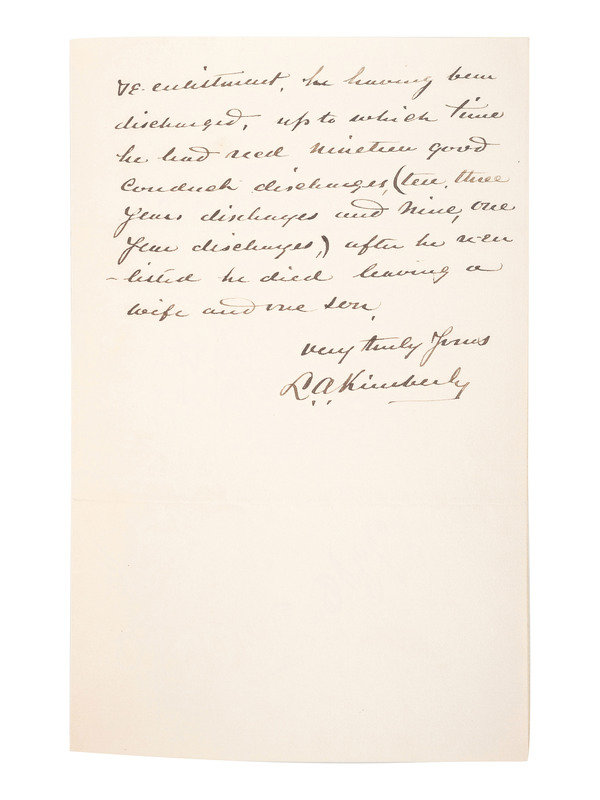 re-enlistment, he having been
discharged, up to which time
he had recd nineteen good
conduct discharges, (ten, three
years discharges and nine, one
year discharges,) after he reen
-listed he died leaving a
wife and one son.
very truly Yours
L.A. Kimberly